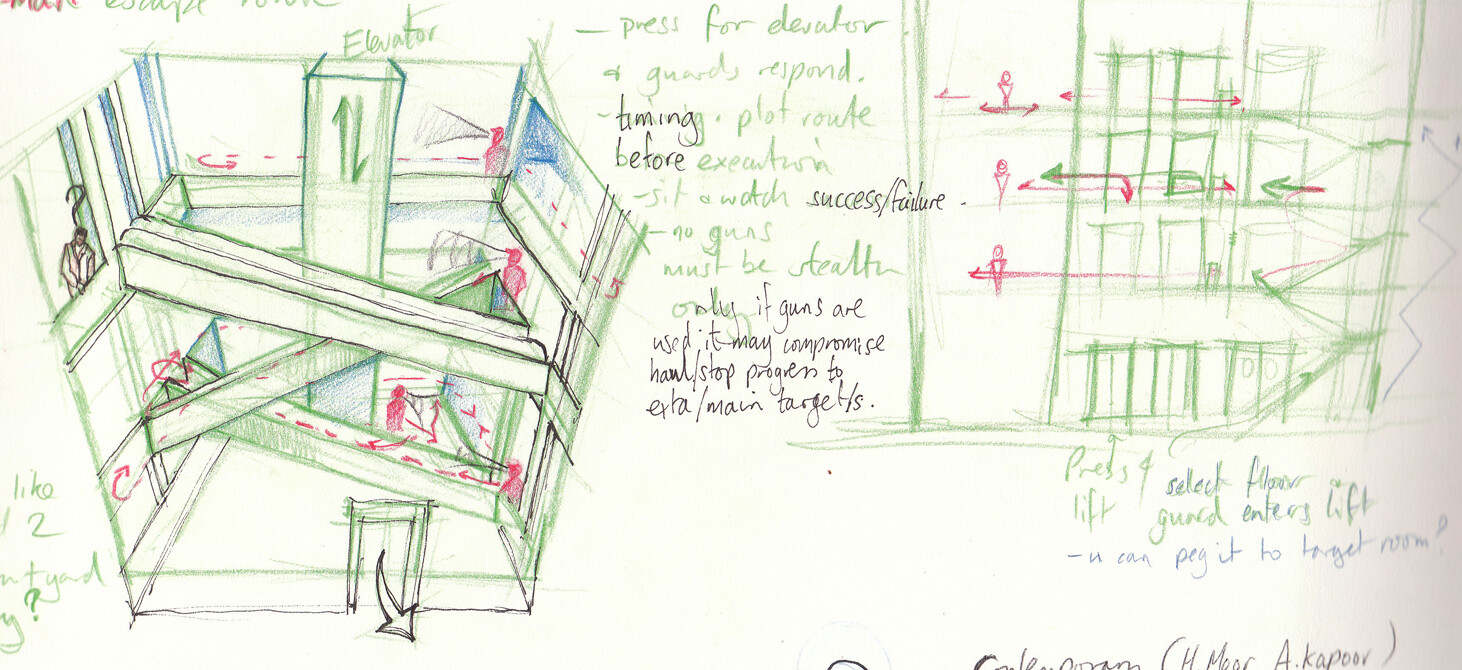 escape route
Elevator
– press for elevator
& guards respond.
– timing. plot route
before execution
– sit & watch success/failure.
– no guns
must be stealth
only if guns are
used it may compromise
haul/stop progress to
exta/main target/s.
like
2
yard
?
Press &
lift
select floor
guard enters lift
– u can peg it to target room?
(H.Moor A.Kapoor)